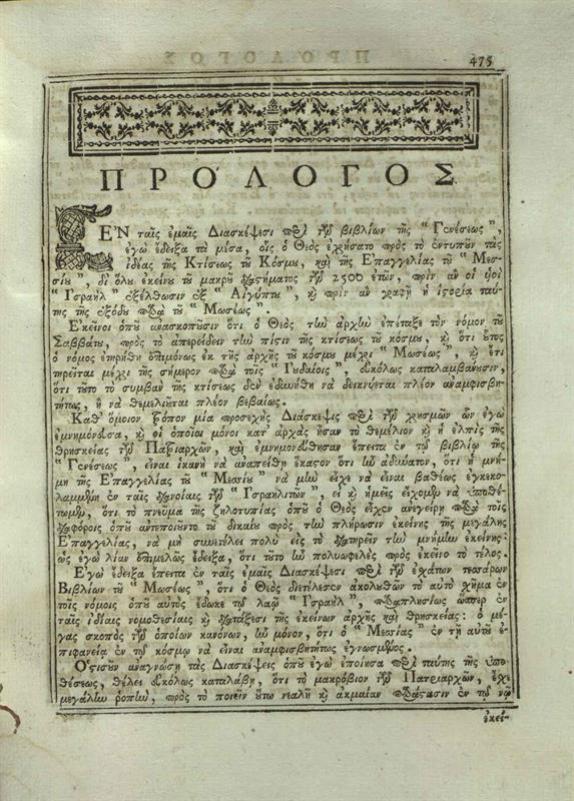 475
ΠΡΌΛΟΓΟΣ
ΕΝ ταῖς ἐμαῖς Διασκέψεσι περὶ τῶν βιβλίων τῆς " Γενέσεως ",
ἐγὼ ἔδειξα τὰ μέσα, οἷς ὁ Θεὸς ἐχρήσατο πρὸς τὸ ἐντυπῶν τὰς
ἰδέας τῆς Κτίσεως τοῦ Κόσμου, καὶ τῆς Ἐπαγγελίας τοῦ " Μεσ-
σίου ", δι' ὅλου ἐκείνου τοῦ μακροῦ διαστήματος τῶν 2500 ἐτῶν, πρὶν ἂν οἱ υἱοὶ
" Ἰσραὴλ " ἐξέλθωσιν ἐξ " Αἰγύπτου ", καὶ πρὶν ἂν γραφῇ ἡ ἱστορία ταύ-
της τῆς ἐξόδου παρὰ τοῦ " Μωσέως ".
Ἐκεῖνοι ὁποῦ ἀνασκοποῦσιν ὅτι ὁ Θεὸς τὴν ἀρχὴν ἐπέταξε τὸν νόμον τοῦ
Σαββάτου, πρὸς τὸ ἀπερείδειν τὴν πίστιν τῆς κτίσεως τοῦ κόσμου, καὶ ὅτι οὗτος
ὁ νόμος ἐτηρήθη ἐπιμόνως ἐκ τῆς ἀρχῆς τοῦ κόσμου μέχρι " Μωσέως ", καὶ ἔτι
τηρεῖται μέχρι τῆς σήμερον παρὰ τοῖς " Ἰουδαίοις ", εὐκόλως καταλαμβάνουσιν,
ὅτι τοῦτο τὸ συμβὰν τῆς κτίσεως δὲν ἐδυνήθη νὰ δεικνύεται πλέον ἀναμφισβη-
τήτως, ἢ νὰ θεμελιοῦται πλέον βεβαίως.
Καθ' ὅμοιον τρόπον μία προσεχὴς Διάσκεψις περὶ τῶν χρησμῶν ὧν ἐγὼ
ἐμνημόνευσα, καὶ οἱ ὁποῖοι μόνοι κατ' ἀρχὰς ἦσαν τὸ θεμέλιον καὶ ἡ ἐλπὶς τῆς
θρησκείας τῶν Πατριαρχῶν, καὶ ἐμνημονεύθησαν ἔπειτα ἐν τῷ βιβλίῳ τῆς
" Γενέσεως ", εἶναι ἱκανὴ νὰ ἀναπείθῃ ἕκαστον ὅτι ἦν ἀδύνατον, ὅτι ἡ μνή-
μη τῆς Ἐπαγγελίας τοῦ " Μεσίου " νὰ μὴν εἶχε νὰ εἶναι βαθέως ἐγκεκο-
λαμμένη ἐν ταῖς διανοίαις τῶν " Ἰσραηλιτῶν ", εἰ καὶ ἡμεῖς εἴχομεν νὰ ὑποθέ-
τωμεν, ὅτι τὸ πνεῦμα τῆς ζηλοτυπίας ὁποῦ ὁ Θεὸς εἶχεν ἀνεγείρῃ παρὰ τοῖς
διαφόροις ὁποῦ ἀντεποιοῦντο τοῦ δικαίου πρὸς τὴν πλήρωσιν ἐκείνης τῆς μεγάλης
Ἐπαγγελίας, νὰ μὴ συνετέλει πολὺ εἰς τὸ διατηρεῖν τὴν μνήμην ἐκείνης:
ὡς ἐγὼ λίαν ἐπιμελῶς ἔδειξα, ὅτι τοῦτο ἦν πολυωφελὲς πρὸς ἐκεῖνο τὸ τέλος.
Ἐγὼ ἔδειξα ἔπειτα ἐν ταῖς ἐμαῖς Διασκέψεσι περὶ τῶν ἐσχάτων τεσσάρων
Βιβλίων τοῦ " Μωσέως ", ὅτι ὁ Θεὸς διετέλεσεν ἀκολουθῶν τὸ αὐτὸ σχῆμα ἐν
τοῖς νόμοις ὁποῦ αὐτὸς ἔδωκε τῷ λαῷ " Ἰσραὴλ ", παραπλησίως ὥσπερ ἐν
ταῖς ἰδίαις νομοθεσίαις καὶ διατάξεσι τῆς ἐκείνων ἀρχῆς καὶ θρησκείας: ὁ μέ-
γας σκοπὸς τῶν ὁποίων κανόνων, ἦν μόνον, ὅτι ὁ " Μεσσίας " ἐν τῇ αὐτοῦ ἐ-
πιφανείᾳ ἐν τῷ κόσμῳ νὰ εἶναι ἀναμφισβητήτως ἐγνωσμένος.
Ὅστις οὖν ἀναγνώσῃ τὰς Διασκέψεις ὁποῦ ἐγὼ ἐποίησα περὶ ταύτης τῆς ὑπο-
θέσεως, θέλει εὐκόλως καταλάβῃ, ὅτι τὸ μακρόβιον τῶν Πατριαρχῶν, ἔχει
μεγάλην ῥοπὴν, πρὸς τὸ ποιεῖν οὕτω νεαλῆ καὶ ἀκμαίαν παράστασιν ἐν τῷ νῷ
ἐκεί-